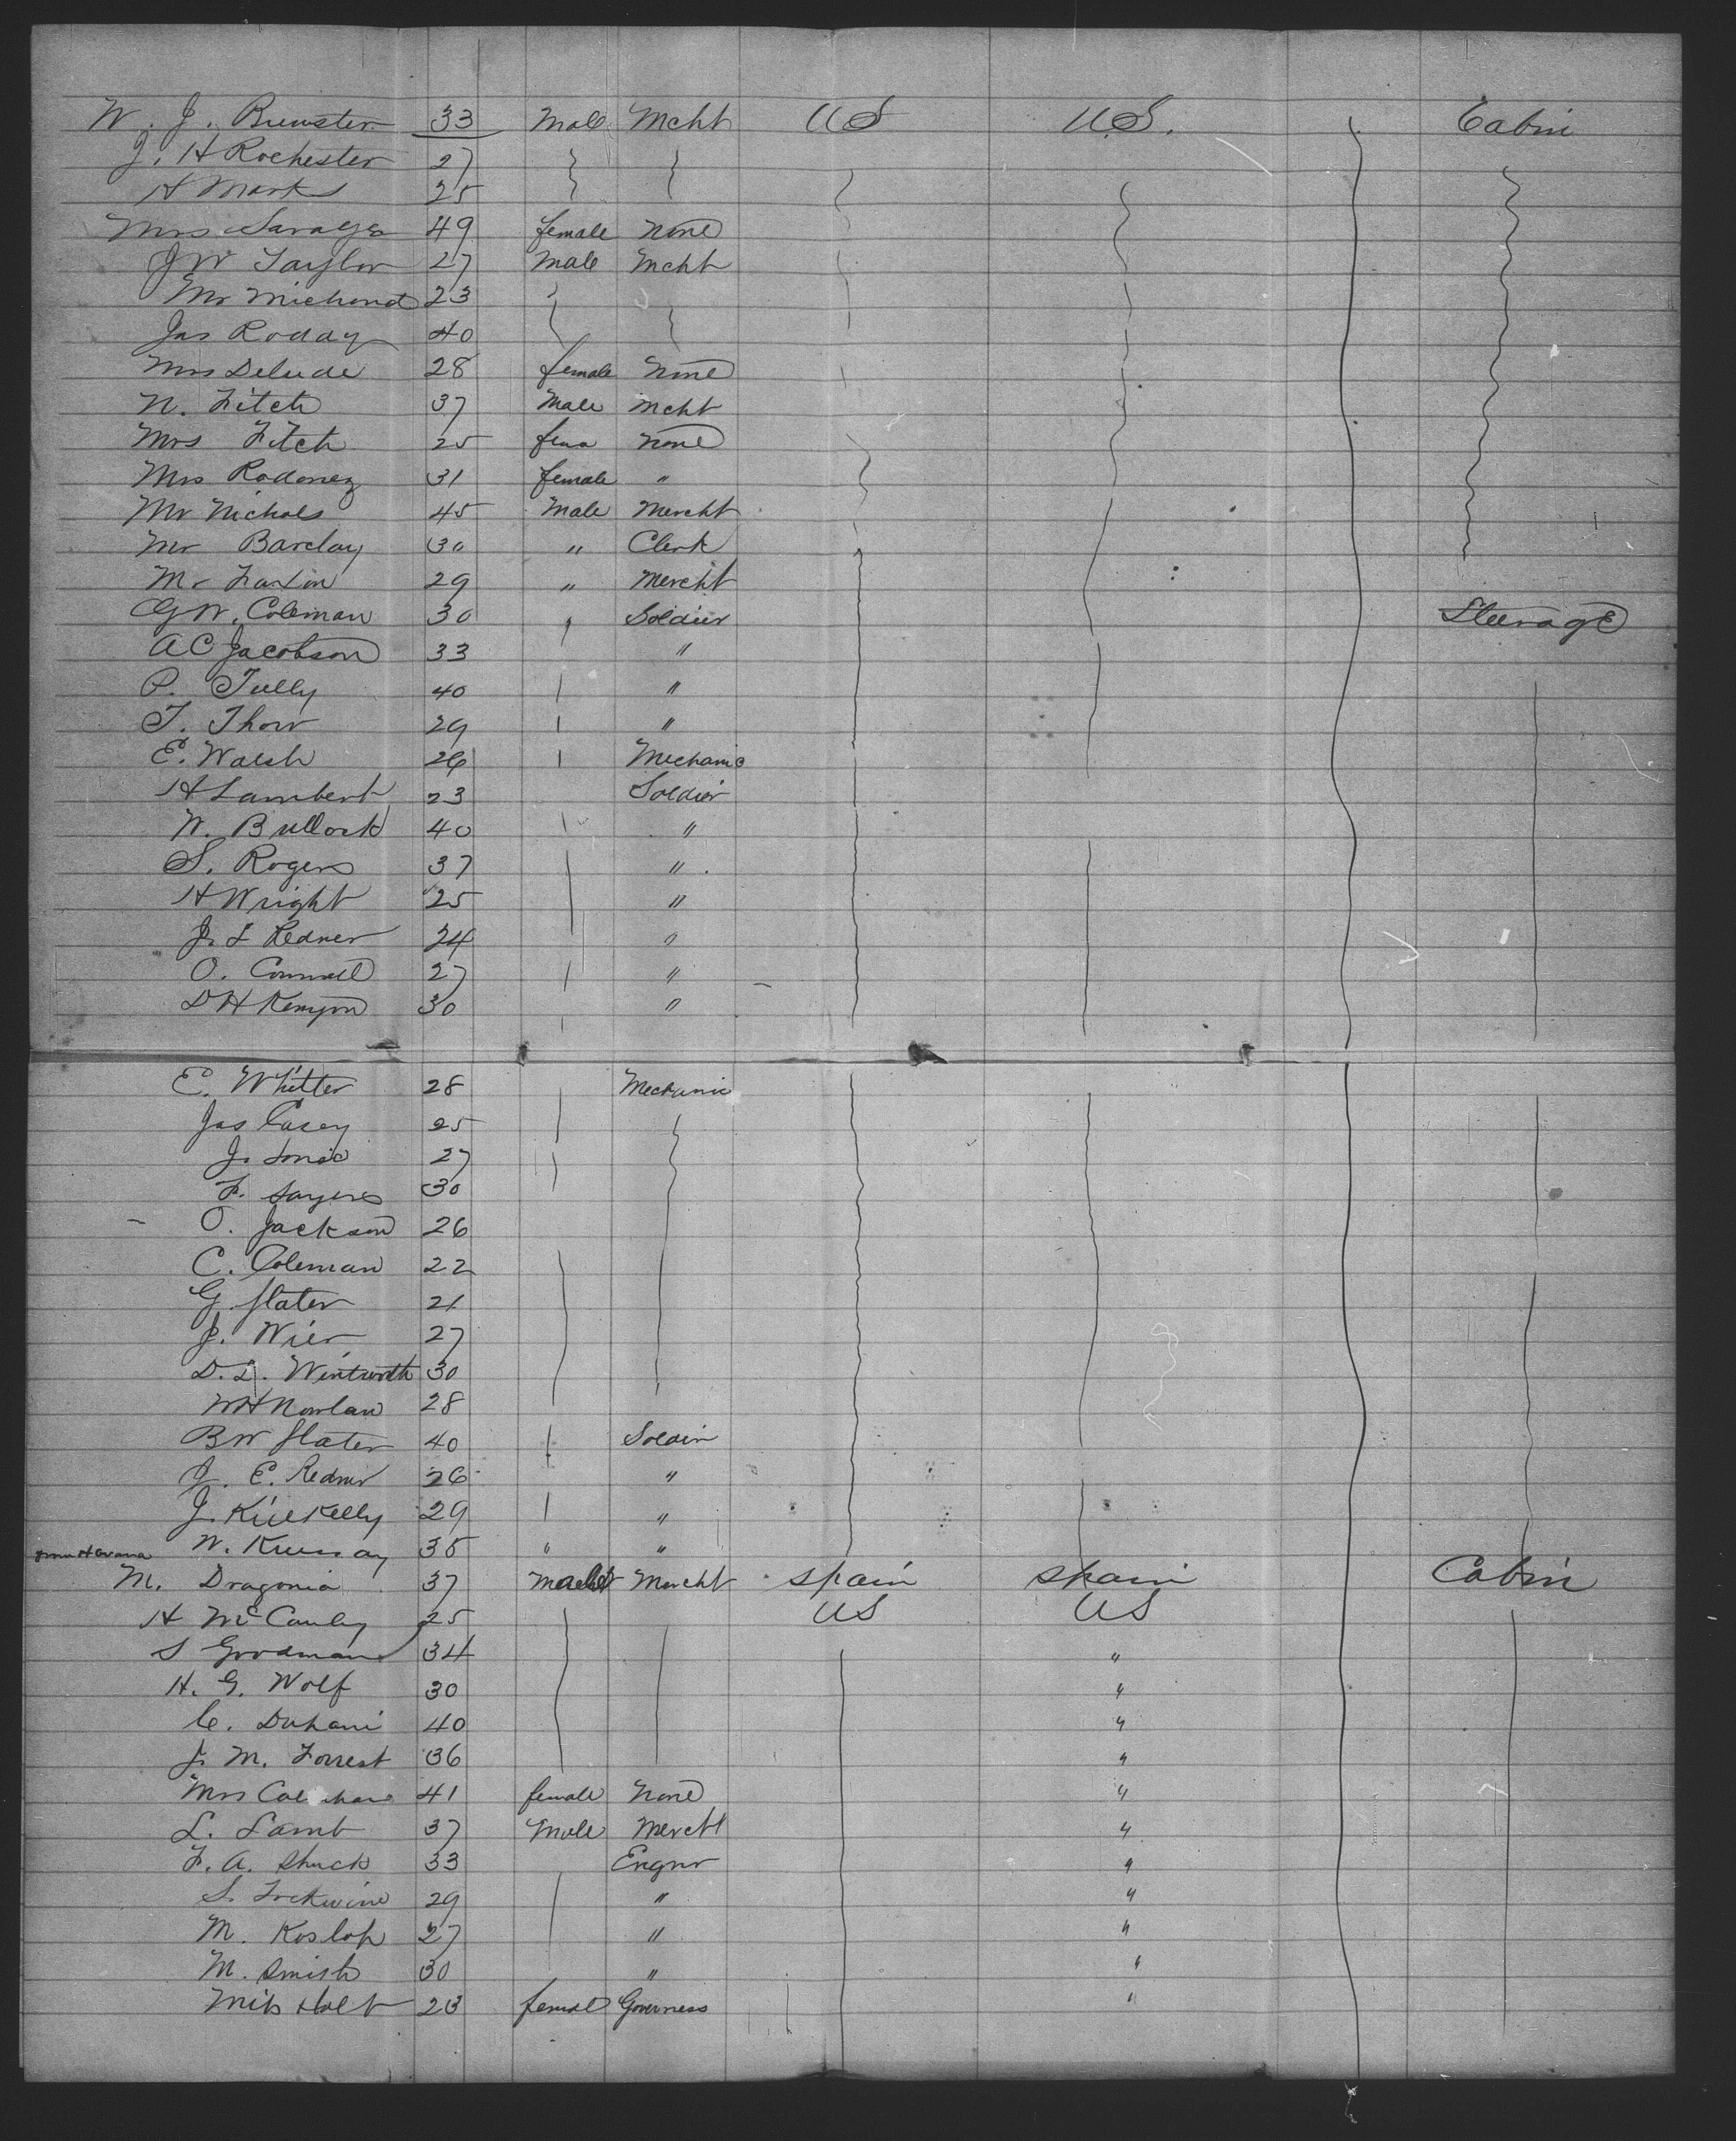 W. J. Brewster 33 Male Mcht US U.S. Cabin
J. H Rochester 27
H Marks 25
Mrs Savage 49 female None
J W Taylor 27 Male Mcht
Mr Michond 23
Jas Roday 40
Mrs Delude 28 female None
N. Fitch 37 Male Mcht
Mrs Fitch 25 fema None
Mrs 31 female "
Mr Nichols 45 Male Mercht
Mr Barclay 30 " Clerk
Mr 29 " Mercht
G W. Coleman 30 " Soldier Steerage
A C Jacobson 33 "
P. Tully 40 "
T. Thow 29 "
E. Walsh 26 Mechanic
H Lambert 23 Soldier
W. Bullock 40 "
S. Rogers 37 "
H Wright 25 "
J. L Redner 24 "
O. Connell 27 "
D H Kenyon 30 "
E. Whitter 28 Mechanic
Jas Casey 25
J. 27
F. Sayers 30
O. Jackson 26
C. Coleman 22
G. Slater 21
J. Wier 27
D. L. Wintworth 30
W H Nowlan 28
B W Slater 40 Soldier
J. E. Redner 26 "
J. Kilkelly 29 "
from Havana W. 35 " "
M. Dragonia 37 Mercht Spain Spain Cabin
H McCauley 25 US US
S Goodman 34 "
H. G. Wolf 30 "
C. Duhani 40 "
J. M. Forrest 36 "
Mrs 41 female None "
L. Lamb 37 Male Mercht "
F. A. Shuck 33 Engnr "
S. 29 " "
M. Kosloh 27 " "
M. Smith 30 " "
Miss Holt 23 female Governess "